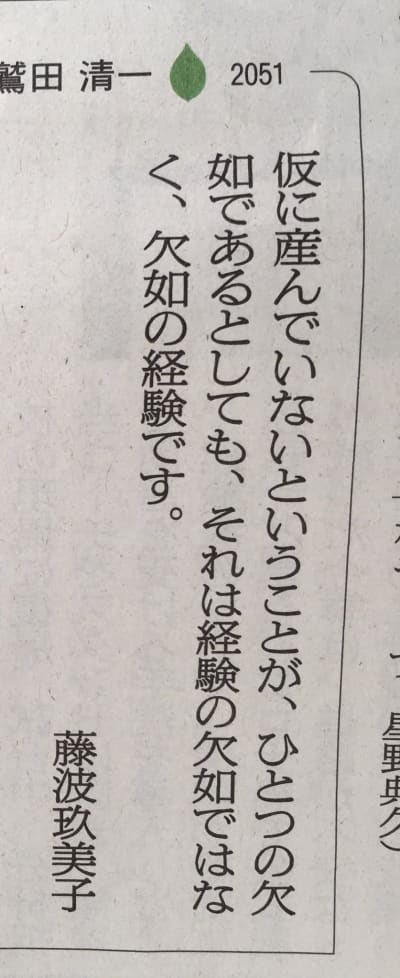 鷲田 清一 2051
仮に産んでいないということが、ひとつの欠
如であるとしても、それは経験の欠如ではな
く、欠如の経験です。
藤波玖美子
星野典久）